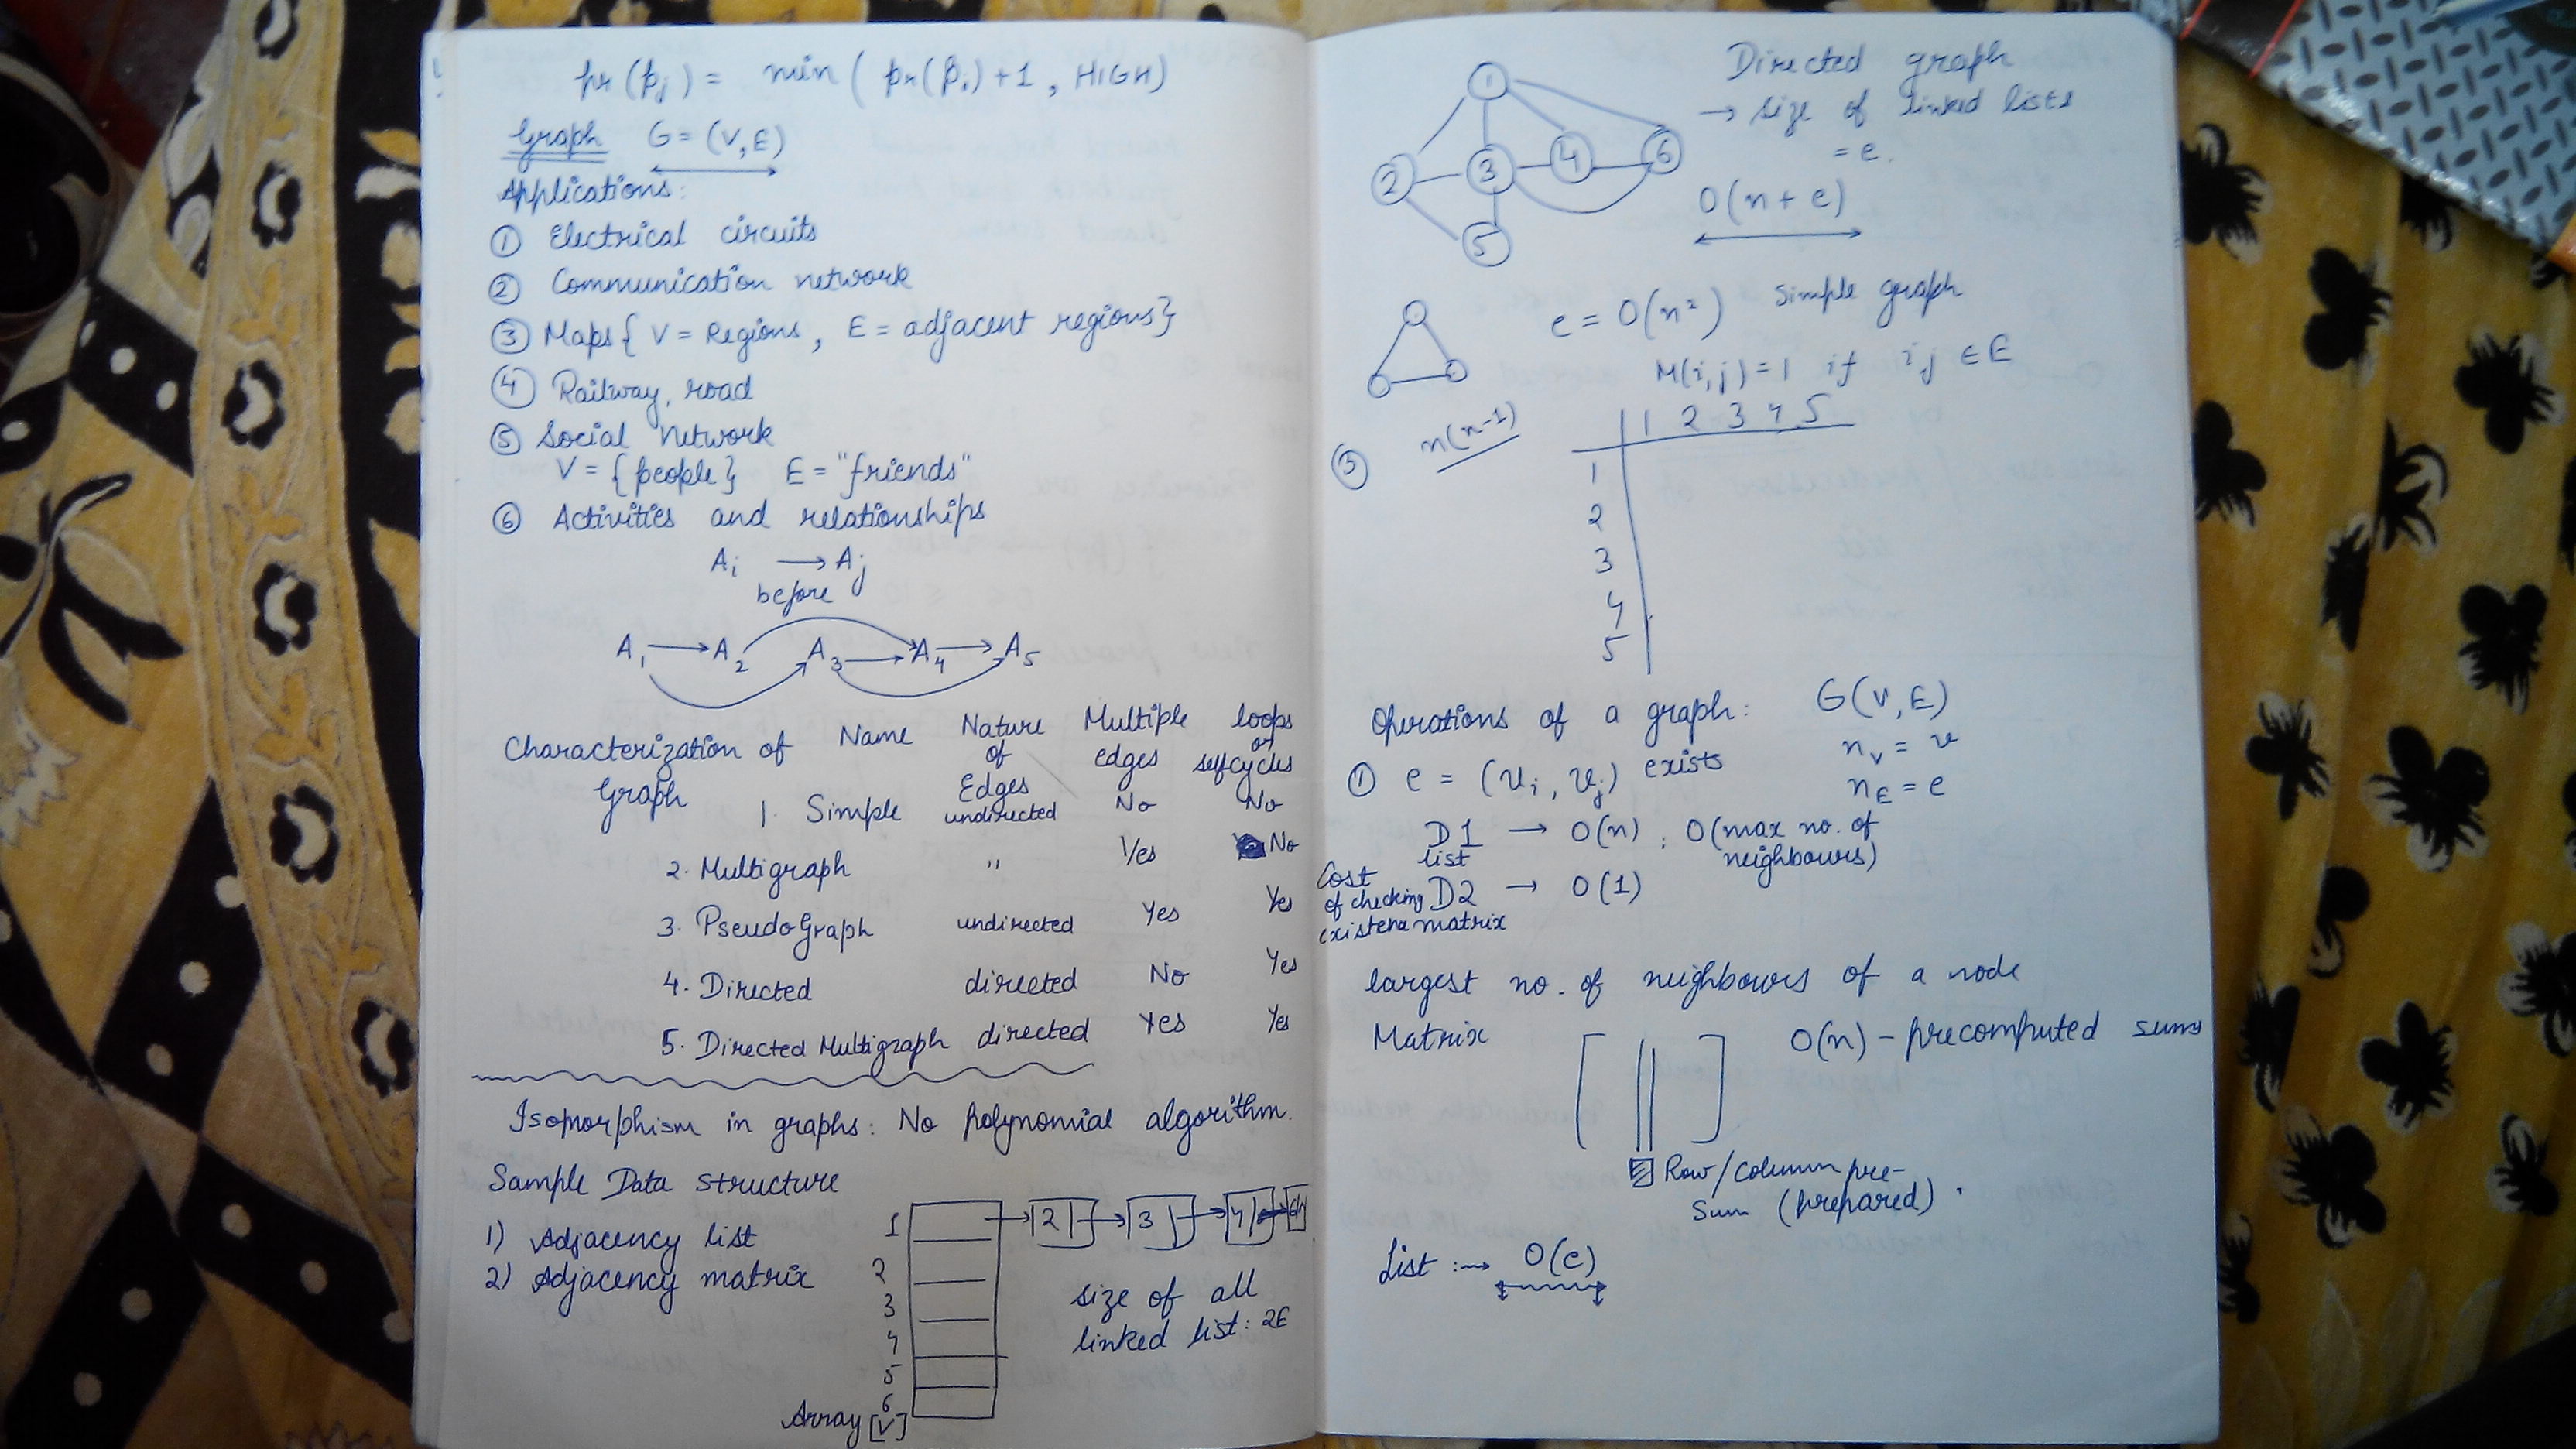 pr(pj) = min( pr(pi)+1 , HIGH)
Graph G = (V,E)
Applications:
① Electrical circuits
② Communication network
③ Maps { V = Regions , E = adjacent regions}
④ Railway, road
⑤ Social network
V = {people} E = "friends"
⑥ Activities and relationships
Ai → Aj
before
A1 → A2 A3 → A4 → A5
Characterization of Graph
Name Nature of Edges Multiple edges loops or selfcycles
1. Simple undirected No No
2. Multigraph " Yes No
3. PseudoGraph undirected Yes Yes
4. Directed directed No Yes
5. Directed Multigraph directed Yes Yes
Isomorphism in graphs: No polynomial algorithm.
Sample Data structure
1) Adjacency list
2) Adjacency matrix
1 → 2 → 3 → 4 →
2
3
4
5
6
Array [V]
size of all
linked list: 2E
1
2 3 4 6
5
Directed graph
→ size of linked lists
= e.
O(n + e)
e = O(n²) simple graph
M(i,j) = 1 if ij ∈ E
n(n-1)
③
1 2 3 4 5
1
2
3
4
5
Operations of a graph: G(V,E)
nV = v
① e = (vi, vj) exists
nE = e
D1 → O(n) ; O(max no. of
list neighbours)
Cost
of checking D2 → O(1)
existence matrix
largest no. of neighbours of a node
Matrix O(n) - precomputed sums
Row/Column pre-
Sum (prepared).
List :→ O(e)